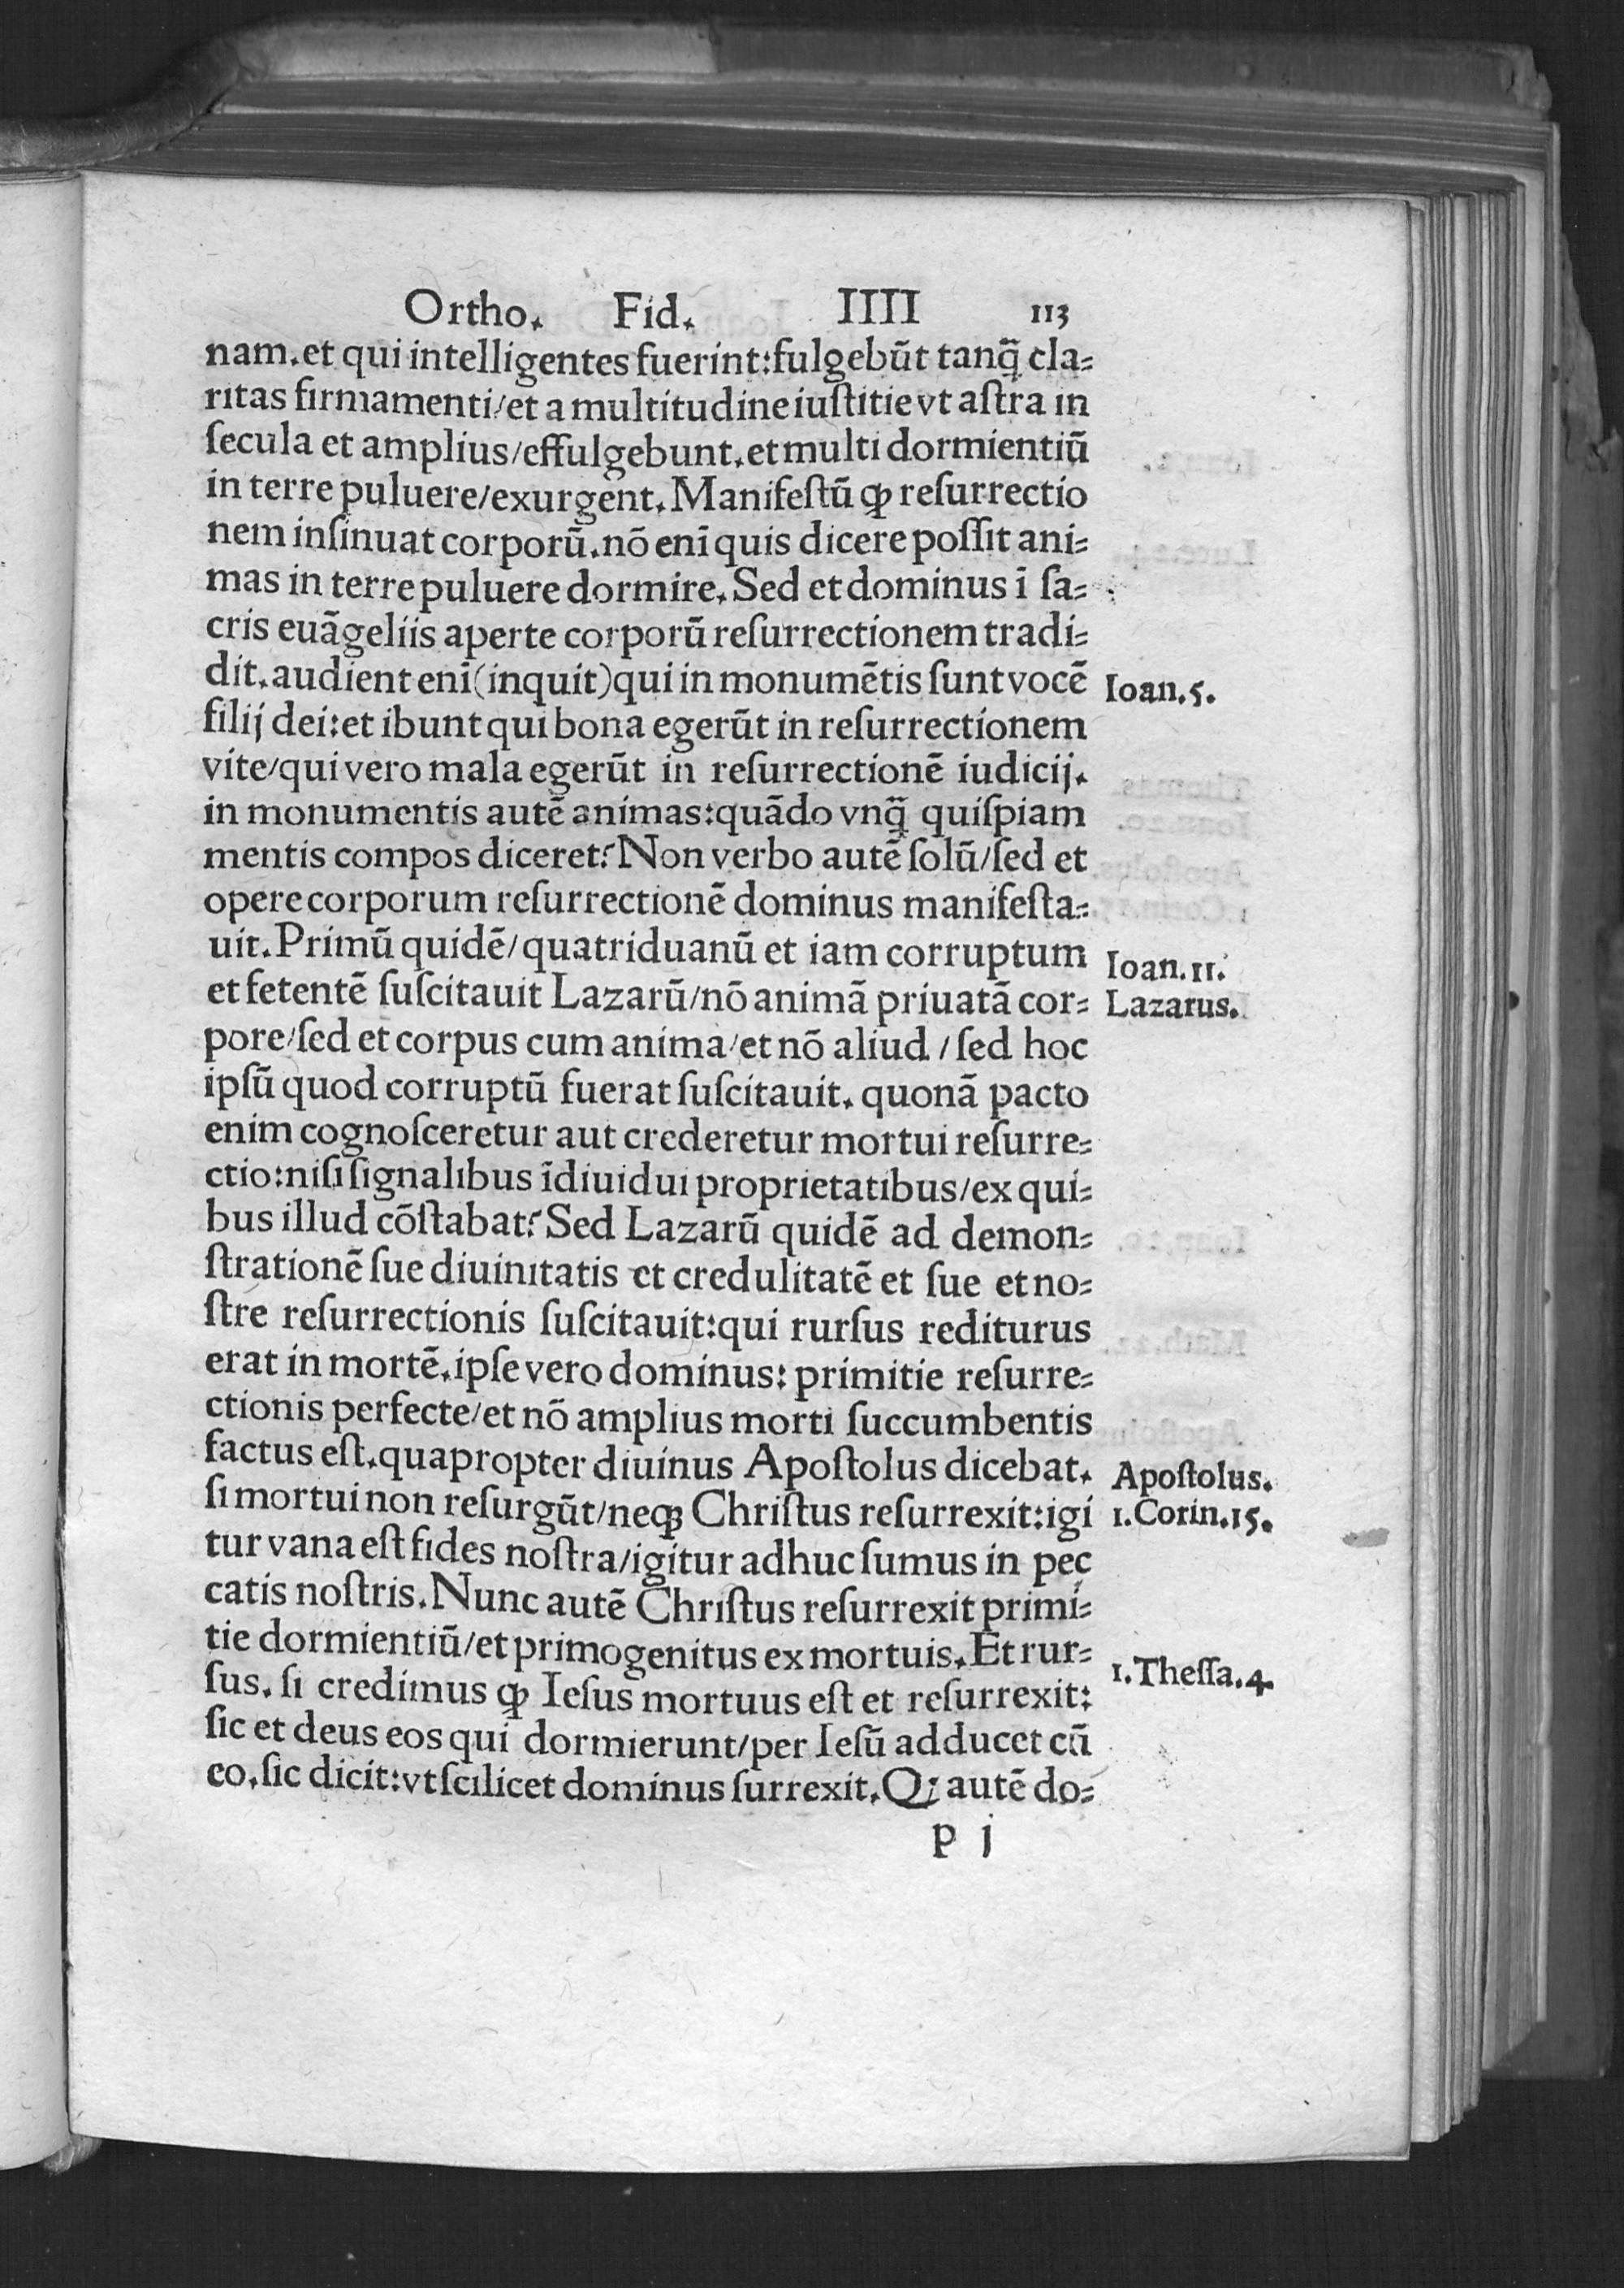 Ortho. Fid. IIII 113
nam.et qui intelligentes fuerint:fulgebūt tanq̄ cla=
ritas firmamenti/et a multitudine iuſtitie vt aſtra in
ſecula et amplius/effulgebunt.et multi dormientiū
in terre puluere/exurgent.Manifeſtū ꝙ reſurrectio
nem inſinuat corporū.nō enī quis dicere poſſit ani=
mas in terre puluere dormire.Sed et dominus ī ſa=
cris euāgeliis aperte corporū reſurrectionem tradi=
dit.audient enī(inquit)qui in monumētis ſunt vocē
Ioan.5.
filij dei:et ibunt qui bona egerūt in reſurrectionem
vite/qui vero mala egerūt in reſurrectionē iudicij.
in monumentis autē animas:quādo vnq̄ quiſpiam
mentis compos diceret?Non verbo autē ſolū/ſed et
opere corporum reſurrectionē dominus manifeſta=
uit.Primū quidē/quatriduanū et iam corruptum
Ioan.11.
et fetentē ſuſcitauit Lazarū/nō animā priuatā cor=
Lazarus.
pore/ſed et corpus cum anima/et nō aliud/ſed hoc
ipſū quod corruptū fuerat ſuſcitauit.quonā pacto
enim cognoſceretur aut crederetur mortui reſurre=
ctio:niſi ſignalibus īdiuidui proprietatibus/ex qui=
bus illud cōſtabat?Sed Lazarū quidē ad demon=
ſtrationē ſue diuinitatis et credulitatē et ſue et no=
ſtre reſurrectionis ſuſcitauit:qui rurſus rediturus
erat in mortē.ipſe vero dominus:primitie reſurre=
ctionis perfecte/et nō amplius morti ſuccumbentis
factus eſt.quapropter diuinus Apoſtolus dicebat.
Apoſtolus.
ſi mortui non reſurgūt/neqꝫ Chriſtus reſurrexit:igi
1.Corin.15.
tur vana eſt fides noſtra/igitur adhuc ſumus in pec
catis noſtris.Nunc autē Chriſtus reſurrexit primi=
tie dormientiū/et primogenitus ex mortuis.Et rur=
1.Theſſa.4.
ſus.ſi credimus ꝙ Ieſus mortuus eſt et reſurrexit:
ſic et deus eos qui dormierunt/per Ieſū adducet cū
eo.ſic dicit:vt ſcilicet dominus ſurrexit.Qꝫ autē do=
p j